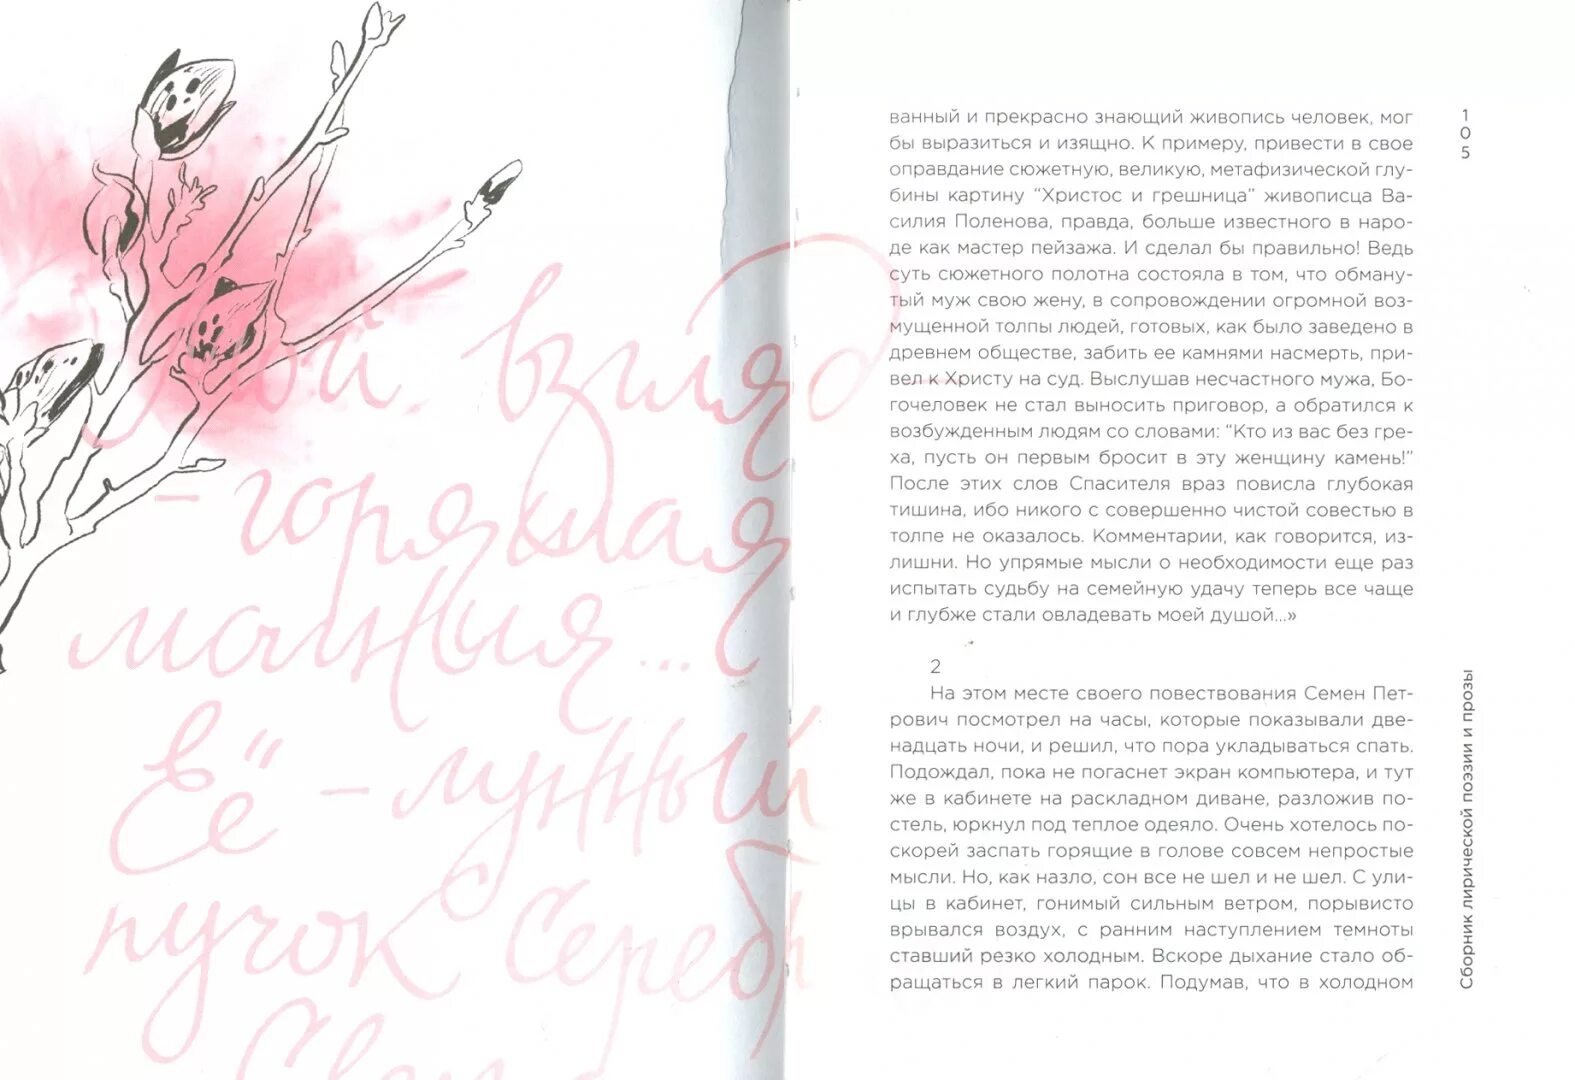 Мой взгляд
– горящая
молния...
в
Её – лунный
пучок серебр
Свет
ванный и прекрасно знающий живопись человек, мог
бы выразиться и изящно. К примеру, привести в свое
оправдание сюжетную, великую, метафизической глу-
бины картину “Христос и грешница” живописца Ва-
силия Поленова, правда, больше известного в наро-
де как мастер пейзажа. И сделал бы правильно! Ведь
суть сюжетного полотна состояла в том, что обману-
тый муж свою жену, в сопровождении огромной воз-
мущенной толпы людей, готовых, как было заведено в
древнем обществе, забить ее камнями насмерть, при-
вел к Христу на суд. Выслушав несчастного мужа, Бо-
гочеловек не стал выносить приговор, а обратился к
возбужденным людям со словами: “Кто из вас без гре-
ха, пусть он первым бросит в эту женщину камень!”
После этих слов Спасителя враз повисла глубокая
тишина, ибо никого с совершенно чистой совестью в
толпе не оказалось. Комментарии, как говорится, из-
лишни. Но упрямые мысли о необходимости еще раз
испытать судьбу на семейную удачу теперь все чаще
и глубже стали овладевать моей душой...»
2
На этом месте своего повествования Семен Пет-
рович посмотрел на часы, которые показывали две-
надцать ночи, и решил, что пора укладываться спать.
Подождал, пока не погаснет экран компьютера, и тут
же в кабинете на раскладном диване, разложив по-
стель, юркнул под теплое одеяло. Очень хотелось по-
скорей заспать горящие в голове совсем непростые
мысли. Но, как назло, сон все не шел и не шел. С ули-
цы в кабинет, гонимый сильным ветром, порывисто
врывался воздух, с ранним наступлением темноты
ставший резко холодным. Вскоре дыхание стало об-
ращаться в легкий парок. Подумав, что в холодном
105
Сборник лирической поэзии и прозы